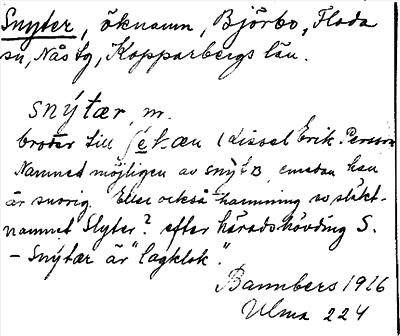 Snyter, öknamn, Björbo, Floda
sn, Nås tg, Kopparbergs län.
snýtær, m.
broder till ſet-æn (Lissel Erik Persson
Namnet möjligen av snýtB, emedan han
är snorig. Eller också hamning av släkt-
namnet Slyter? efter häradshövding S.
– Snýtær är "lagklok".
Bannbers 1916
Ulma 224